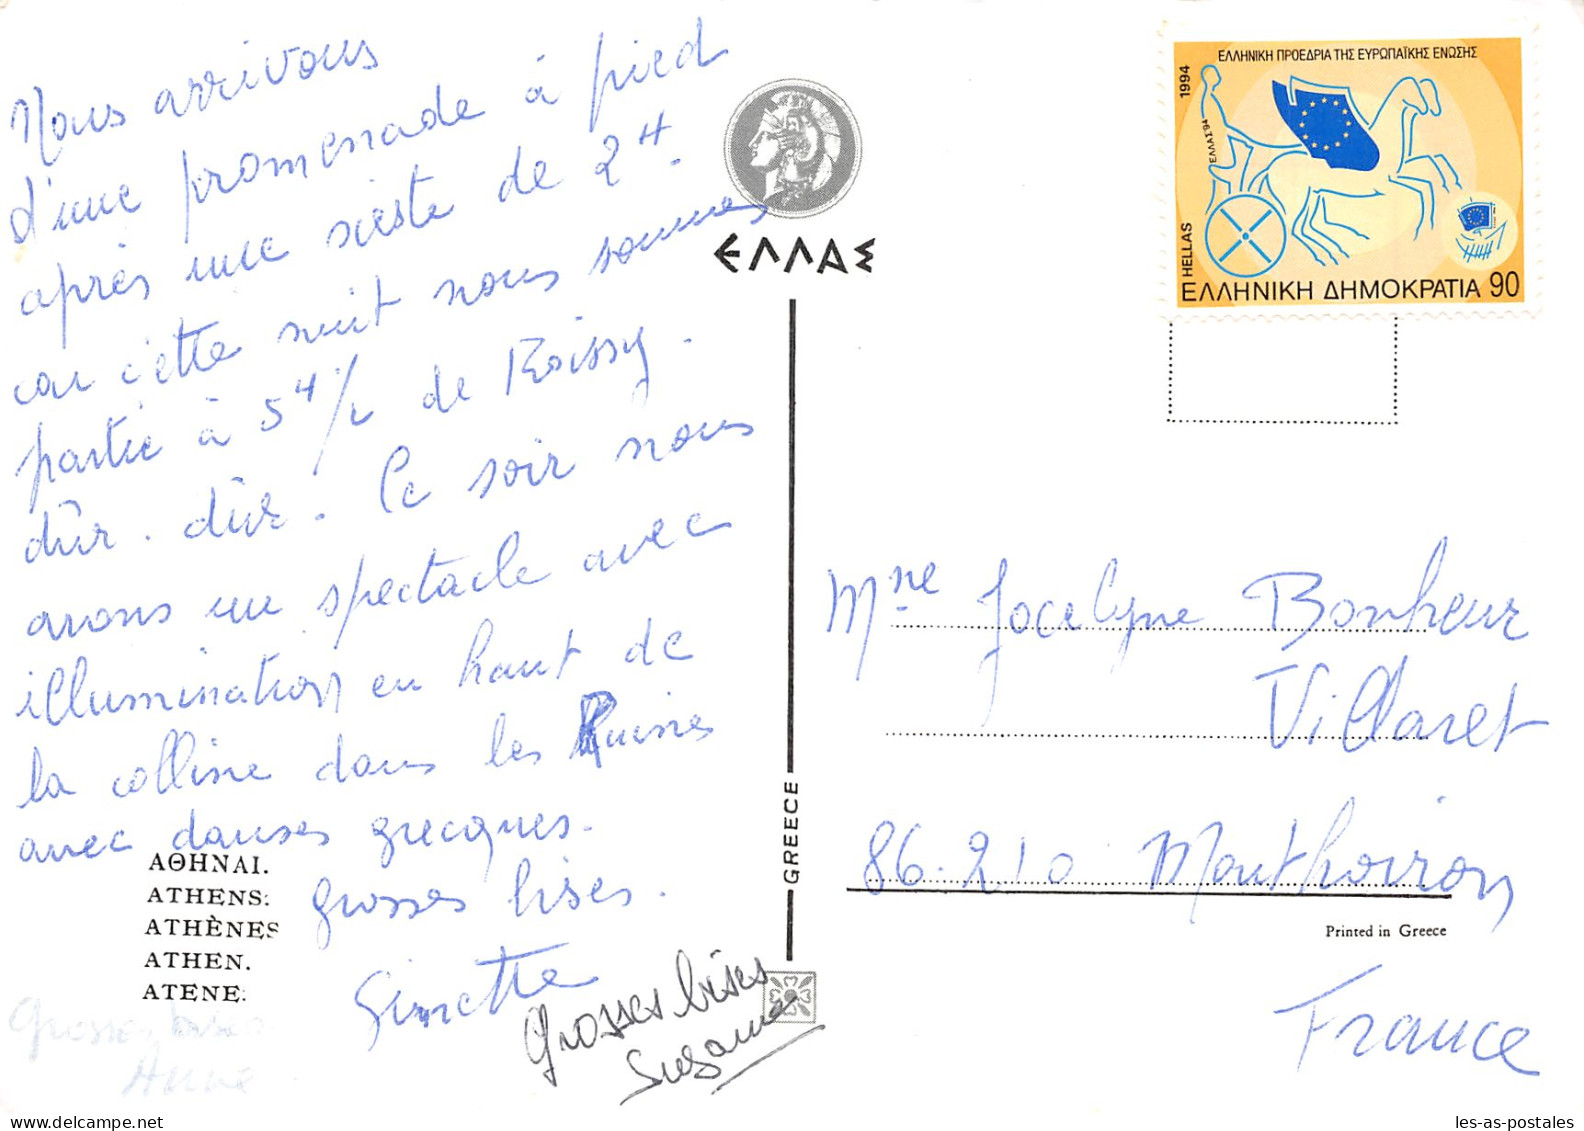 Nous arrivons
d'une promenade à pied
après une sieste de 2H.
car cette nuit nous sommes
partie à 5H/2 de Roissy.
dûr. dûr. Ce soir nous
avons un spectacle avec
illumination en haut de
la colline dans les Ruines
avec danses grecques.
grosses bises.
Ginette
Grosses bises
Suzanne
Grosses bises
Anne
ΑΘΗΝΑΙ.
ATHENS:
ATHÈNES
ATHEN.
ATENE:
ΕΛΛΑΣ
GREECE
ΕΛΛΗΝΙΚΗ ΠΡΟΕΔΡΙΑ ΤΗΣ ΕΥΡΩΠΑΪΚΗΣ ΕΝΩΣΗΣ
1994
ΕΛΛΑΣ'94
HELLAS
ΕΛΛΗΝΙΚΗ ΔΗΜΟΚΡΑΤΙΑ 90
Mme Jocelyne Bonheur
Villaret
86.210 Monthoiron
Printed in Greece
France
les-as-postales